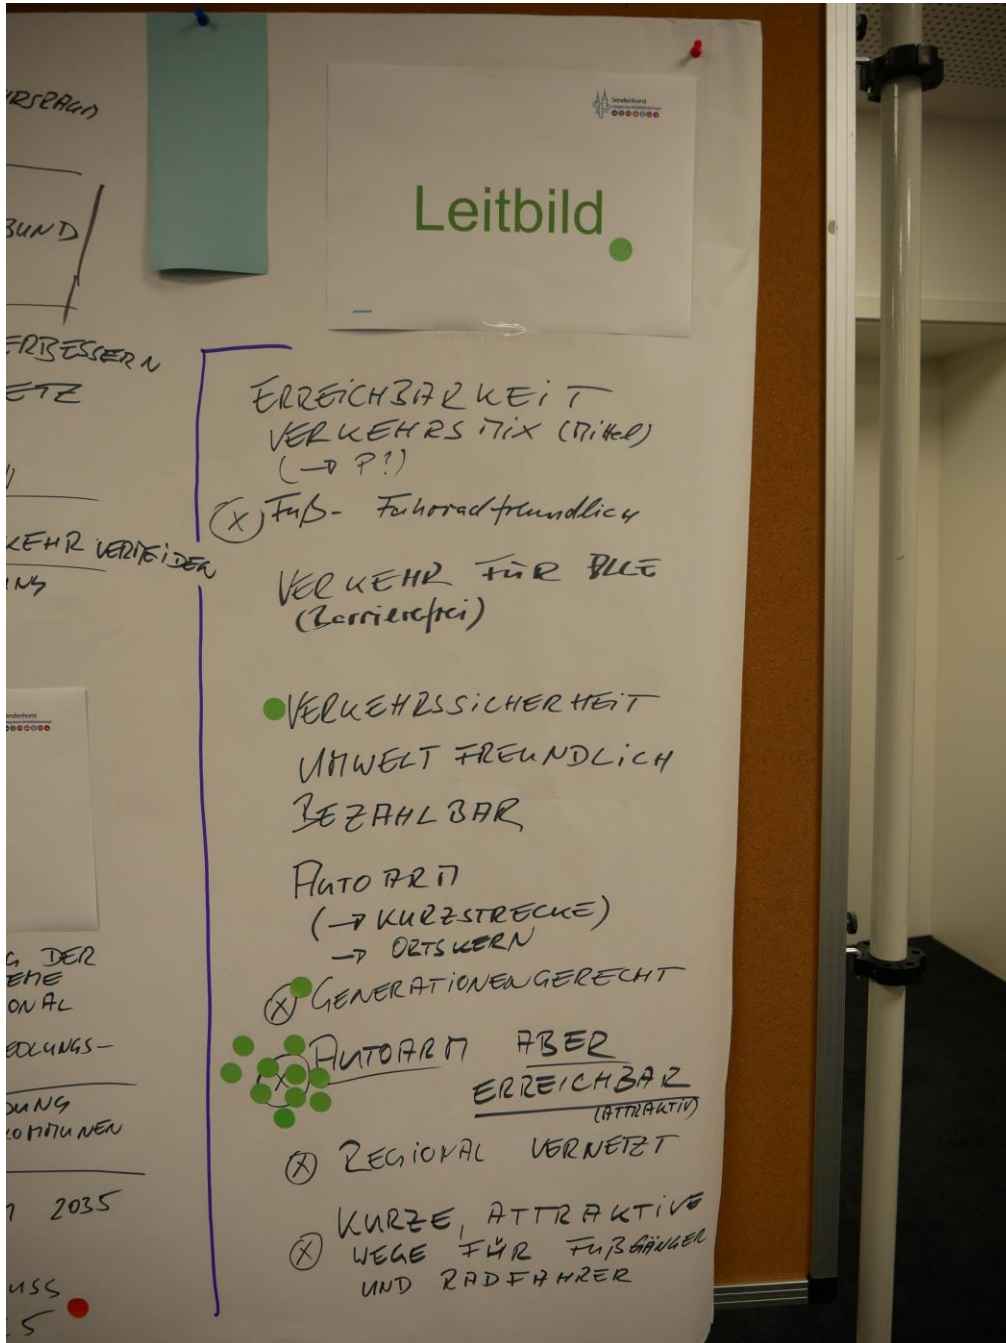 Sendenhorst
Leitbild
BUND
ERBESSERN
ETZ
KEHR VERMEIDEN
ERREICHBARKEIT
VERKEHRSMIX (Mittel)
(→ P!)
(X) Fuß- Fahrradfreundlich
VERKEHR FÜR ALLE
(Barrierefrei)
VERKEHRSSICHERHEIT
UMWELTFREUNDLICH
BEZAHLBAR
AUTOARM
(→ KURZSTRECKE)
→ ORTSKERN
(X) GENERATIONENGERECHT
(X) AUTOARM ABER
ERREICHBAR
(ATTRAKTIV)
(X) REGIONAL VERNETZT
(X) KURZE, ATTRAKTIVE
WEGE FÜR FUßGÄNGER
UND RADFAHRER
endenhorst
G DER
EME
ONAL
EDLUNGS-
DUNG
KOMMUNEN
2035
USS
5